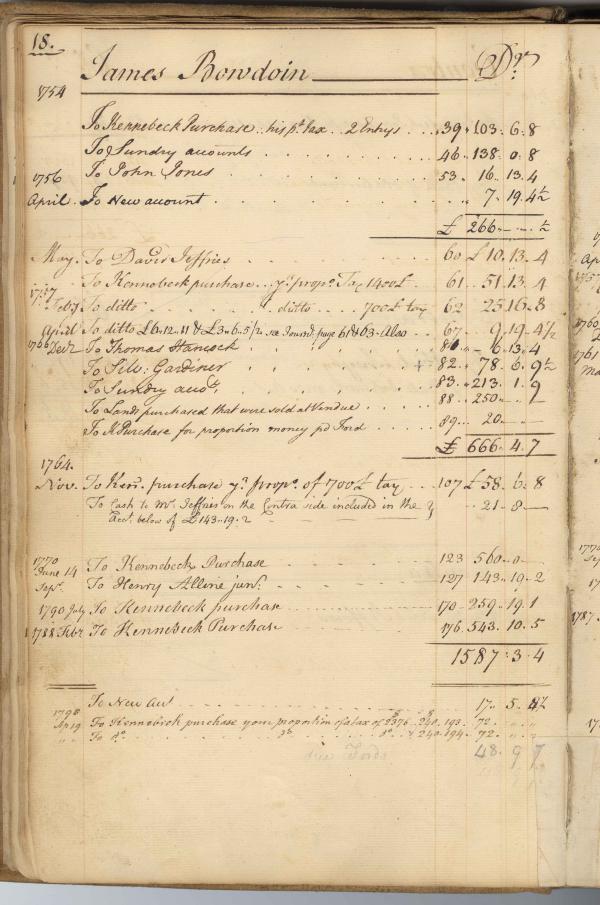 18.
James Bowdoin Dr.
1754
To Kennebeck Purchase .. his pt. tax .. 2 Entrys .. 39 .. 103 .. 6 .. 8
To Sundry accounts 46 .. 138 .. 0 .. 8
1756 To John Jones 53 .. 16 .. 13 .. 4
April .. To New account " 7 .. 19 .. 4½
£ 266 .. — .. ½
May .. To David Jeffries 60 .. £ 10 .. 13 .. 4
To Kennebeck purchase .. yr. propo. Tax 1400£ 61 .. 51 .. 13 .. 4
1757 Feby To ditto ditto 700£ tax 62 25 .. 16 .. 8
April To ditto £6..12..11 & £3..6..5½ see Journal page 61 & 63. Also 67 .. 9 .. 19 .. 4½
1760 Decr To Thomas Hancock — 6 .. 13 .. 4
To Silv: Gardiner + 82 .. 78 .. 6 .. 9½
To Sundry accots. 83 .. 213 .. 1 .. 9
To Lands purchased that were sold at Vendue 88 .. 250 .. — .. 1
To K Purchase for proportion money pd Ford 89 .. 20 .. —
£ 666 .. 4 .. 7
1764.
Nov. To Ken. purchase yr. propo. of 700£ tax 107 £ 58 .. 6 .. 8
To Cash to Mr. Jeffries on the Contra side included in the } .. 21 .. 8 —
Acct. below of £143..19..2
1770
June 14 To Kennebeck Purchase 123 560 .. 0 —
Sepr. To Henry Alline junr. 127 143 .. 19 .. 2
1790 July To Kennebeck purchase 170 .. 259 .. 19 .. 1
1788 Febr To Kennebeck Purchase 176 .. 543 .. 10 .. 5
1587 .. 3 .. 4
To New Act 17 .. 5 ..
1798
Ap 19 To Kennebeck purchase your proportion of a tax of 2376 .. 240 .. 193 .. 72 .. " .. "
" " To do. do. do. 240 .. 194 .. 72 .. " .. "
Fords
48 .. 9 7